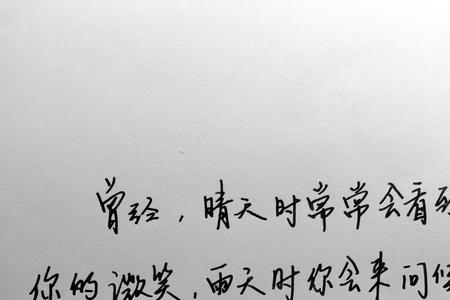 曾经，晴天时常常会看到
你的微笑，雨天时你会来问候